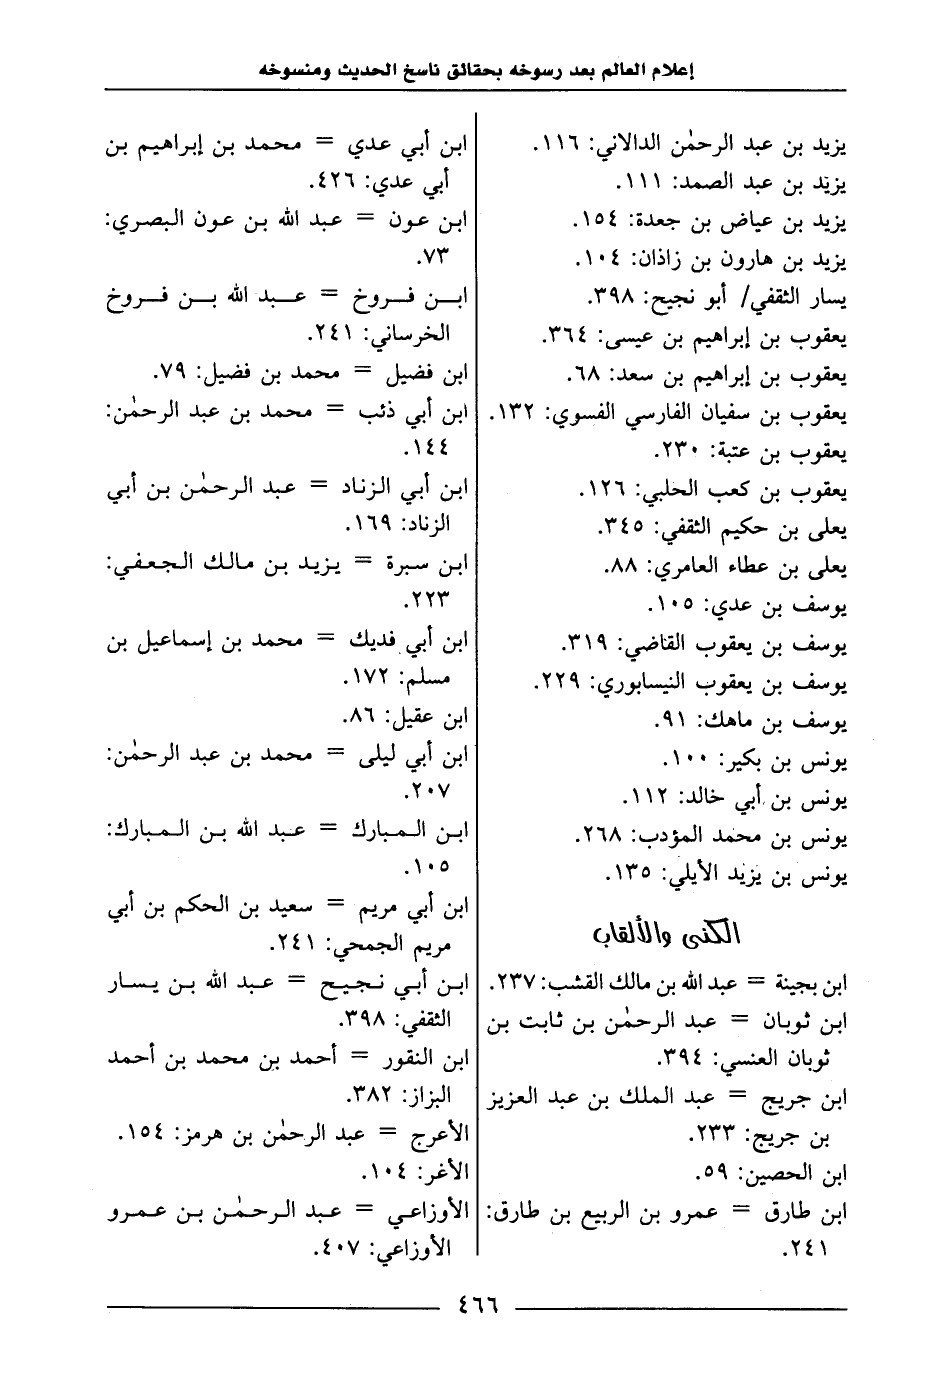 إعلام العالم بعد رسوخه بحقائق ناسخ الحديث ومنسوخه
يزيد بن عبد الرحمٰن الدالاني: ١١٦.
يزيد بن عبد الصمد: ١١١.
يزيد بن عياض بن جعدة: ١٥٤.
يزيد بن هارون بن زاذان: ١٠٤.
يسار الثقفي/ أبو نجيح: ٣٩٨.
يعقوب بن إبراهيم بن عيسى: ٣٦٤.
يعقوب بن إبراهيم بن سعد: ٦٨.
يعقوب بن سفيان الفارسي الفسوي: ١٣٢.
يعقوب بن عتبة: ٢٣٠.
يعقوب بن كعب الحلبي: ١٢٦.
يعلى بن حكيم الثقفي: ٣٤٥.
يعلى بن عطاء العامري: ٨٨.
يوسف بن عدي: ١٠٥.
يوسف بن يعقوب القاضي: ٣١٩.
يوسف بن يعقوب النيسابوري: ٢٢٩.
يوسف بن ماهك: ٩١.
يونس بن بكير: ١٠٠.
يونس بن أبي خالد: ١١٢.
يونس بن محمد المؤدب: ٢٦٨.
يونس بن يزيد الأيلي: ١٣٥.
الكنى والألقاب
ابن بجينة = عبد الله بن مالك القشب: ٢٣٧.
ابن ثوبان = عبد الرحمٰن بن ثابت بن
ثوبان العنسي: ٣٩٤.
ابن جريج = عبد الملك بن عبد العزيز
بن جريج: ٢٣٣.
ابن الحصين: ٥٩.
ابن طارق = عمرو بن الربيع بن طارق:
٢٤١.
ابن أبي عدي = محمد بن إبراهيم بن
أبي عدي: ٤٢٦.
ابن عون = عبد الله بن عون البصري:
٧٣.
ابن فروخ = عبد الله بن فروخ
الخرساني: ٢٤١.
ابن فضيل = محمد بن فضيل: ٧٩.
ابن أبي ذئب = محمد بن عبد الرحمٰن:
١٤٤.
ابن أبي الزناد = عبد الرحمٰن بن أبي
الزناد: ١٦٩.
ابن سبرة = يزيد بن مالك الجعفي:
٢٢٣.
ابن أبي فديك = محمد بن إسماعيل بن
مسلم: ١٧٢.
ابن عقيل: ٨٦.
ابن أبي ليلى = محمد بن عبد الرحمٰن:
٢٠٧.
ابن المبارك = عبد الله بن المبارك:
١٠٥.
ابن أبي مريم = سعيد بن الحكم بن أبي
مريم الجمحي: ٢٤١.
ابن أبي نجيح = عبد الله بن يسار
الثقفي: ٣٩٨.
ابن النقور = أحمد بن محمد بن أحمد
البزاز: ٣٨٢.
الأعرج = عبد الرحمٰن بن هرمز: ١٥٤.
الأغر: ١٠٤.
الأوزاعي = عبد الرحمٰن بن عمرو
الأوزاعي: ٤٠٧.
٤٦٦